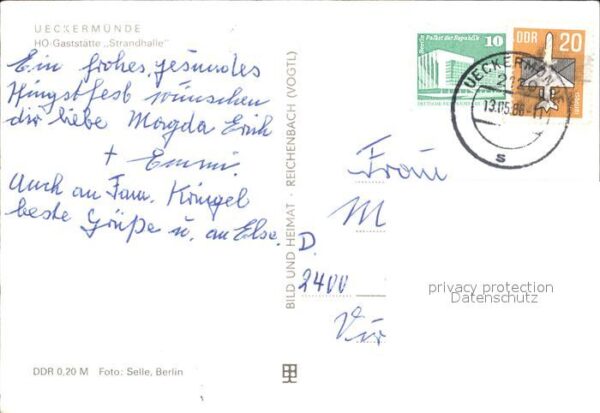 UECKERMÜNDE
HO-Gaststätte „Strandhalle"
Ein frohes, gesundes
Pfingstfest wünschen
dir liebe Magda Erich
+ Emmi.
Auch an Fam. Küngel
beste Grüße u. an Else.
DDR 0,20 M Foto: Selle, Berlin
BILD UND HEIMAT · REICHENBACH (VOGTL)
Berlin Palast der Republik 10
DDR 20
UECKERMÜNDE
13.05.86
s
Frau
M
D.
2400
privacy protection
Datenschutz